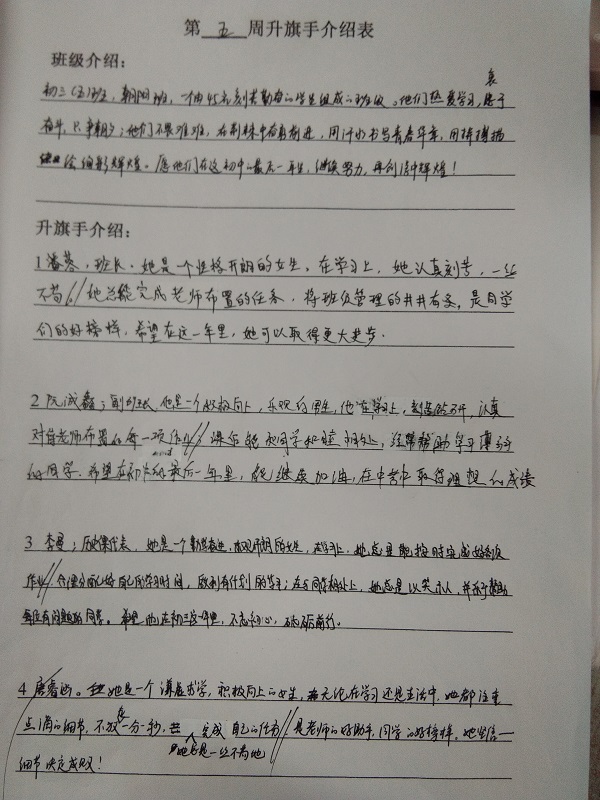 第 五 周升旗手介绍表
班级介绍：
初三(五)班，朝阳班，一个由45名刻苦勤奋的学生组成的班级。他们热爱学习，
奋斗，只争朝夕；他们不畏艰难，在荆棘中奋勇前进，用汗水书写青春华章，用拼搏描
绘缤彩辉煌。愿他们在这初中的最后一年里，继续努力，再创造中辉煌！
升旗手介绍：
1 潘慕，班长。她是一个性格开朗的女生，在学习上，她认真刻苦，一丝
不苟。她总能完成老师布置的任务，将班级管理的井井有条，是同学
们的好榜样，希望在这一年里，她可以取得更大进步．
2 阮诚鑫；副班长，他是一个积极向上，乐观的男生，他在学习上，刻苦钻研，认真
对待老师布置的每一项作业 课后能和同学和睦相处，经常帮助学习薄弱
的同学．希望在初中的最后一年里，能继续加油，在中考中取得理想的成绩
3 李曼；历史课代表，她是一个勤学奋进，乐观开朗的女生，在学习上，她总是能按时完成好每次
作业 合理分配好自己的学习时间，做到有计划的学习；在与同学相处上，她总是以笑示人，并乐于帮助
每位有问题的同学。希望她在初三这一年里，不忘初心，砥砺前行。
4 唐 。她是一个谦虚好学，积极向上的女生，无论在学习还是生活中，她都注重
点滴的细节，不放过一分一秒， 完成自己的任务 是老师的好助手，同学的好榜样，她坚信一
她总是一丝不苟地
细节决定成败！